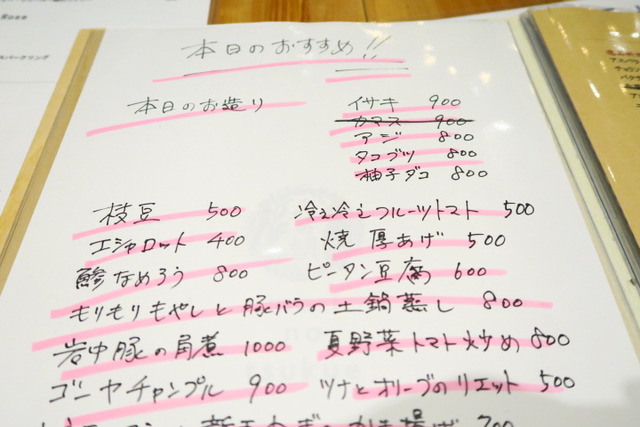 Rose
スパークリング
本日のおすすめ!!
本日のお造り
イサキ 900
カマス 900
アジ 800
タコブツ 800
柚子ダコ 800
枝豆 500
冷え冷えフルーツトマト 500
エシャロット 400
焼厚あげ 500
鯵なめろう 800
ピータン豆腐 600
もりもりもやしと豚バラの土鍋蒸し 800
岩中豚の角煮 1000
夏野菜トマト炒め 800
ゴーヤチャンプル 900
ツナとオリーブのリエット 500